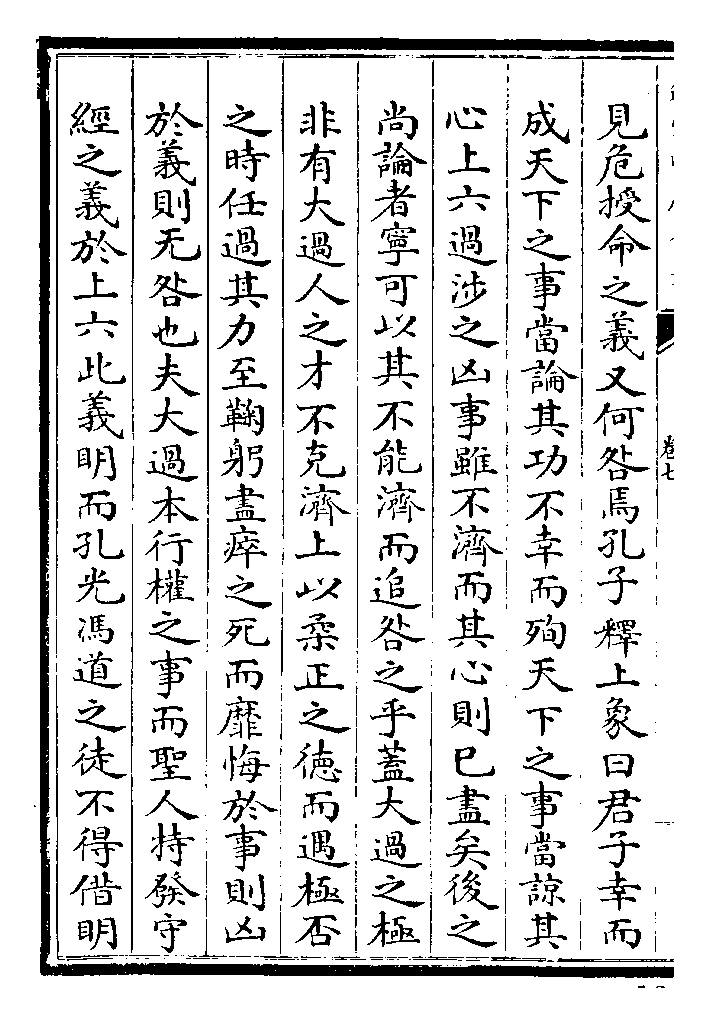 見危授命之義又何咎焉孔子釋上象曰君子幸而
成天下之事當論其功不幸而殉天下之事當諒其
心上六過涉之凶事雖不濟而其心則已盡矣後之
尚論者寧可以其不能濟而追咎之乎蓋大過之極
非有大過人之才不克濟上以柔正之德而遇極否
之時任過其力至鞠躬盡瘁之死而靡悔於事則凶
於義則无咎也夫大過本行權之事而聖人特發守
經之義於上六此義明而孔光馮道之徒不得借明
卷七